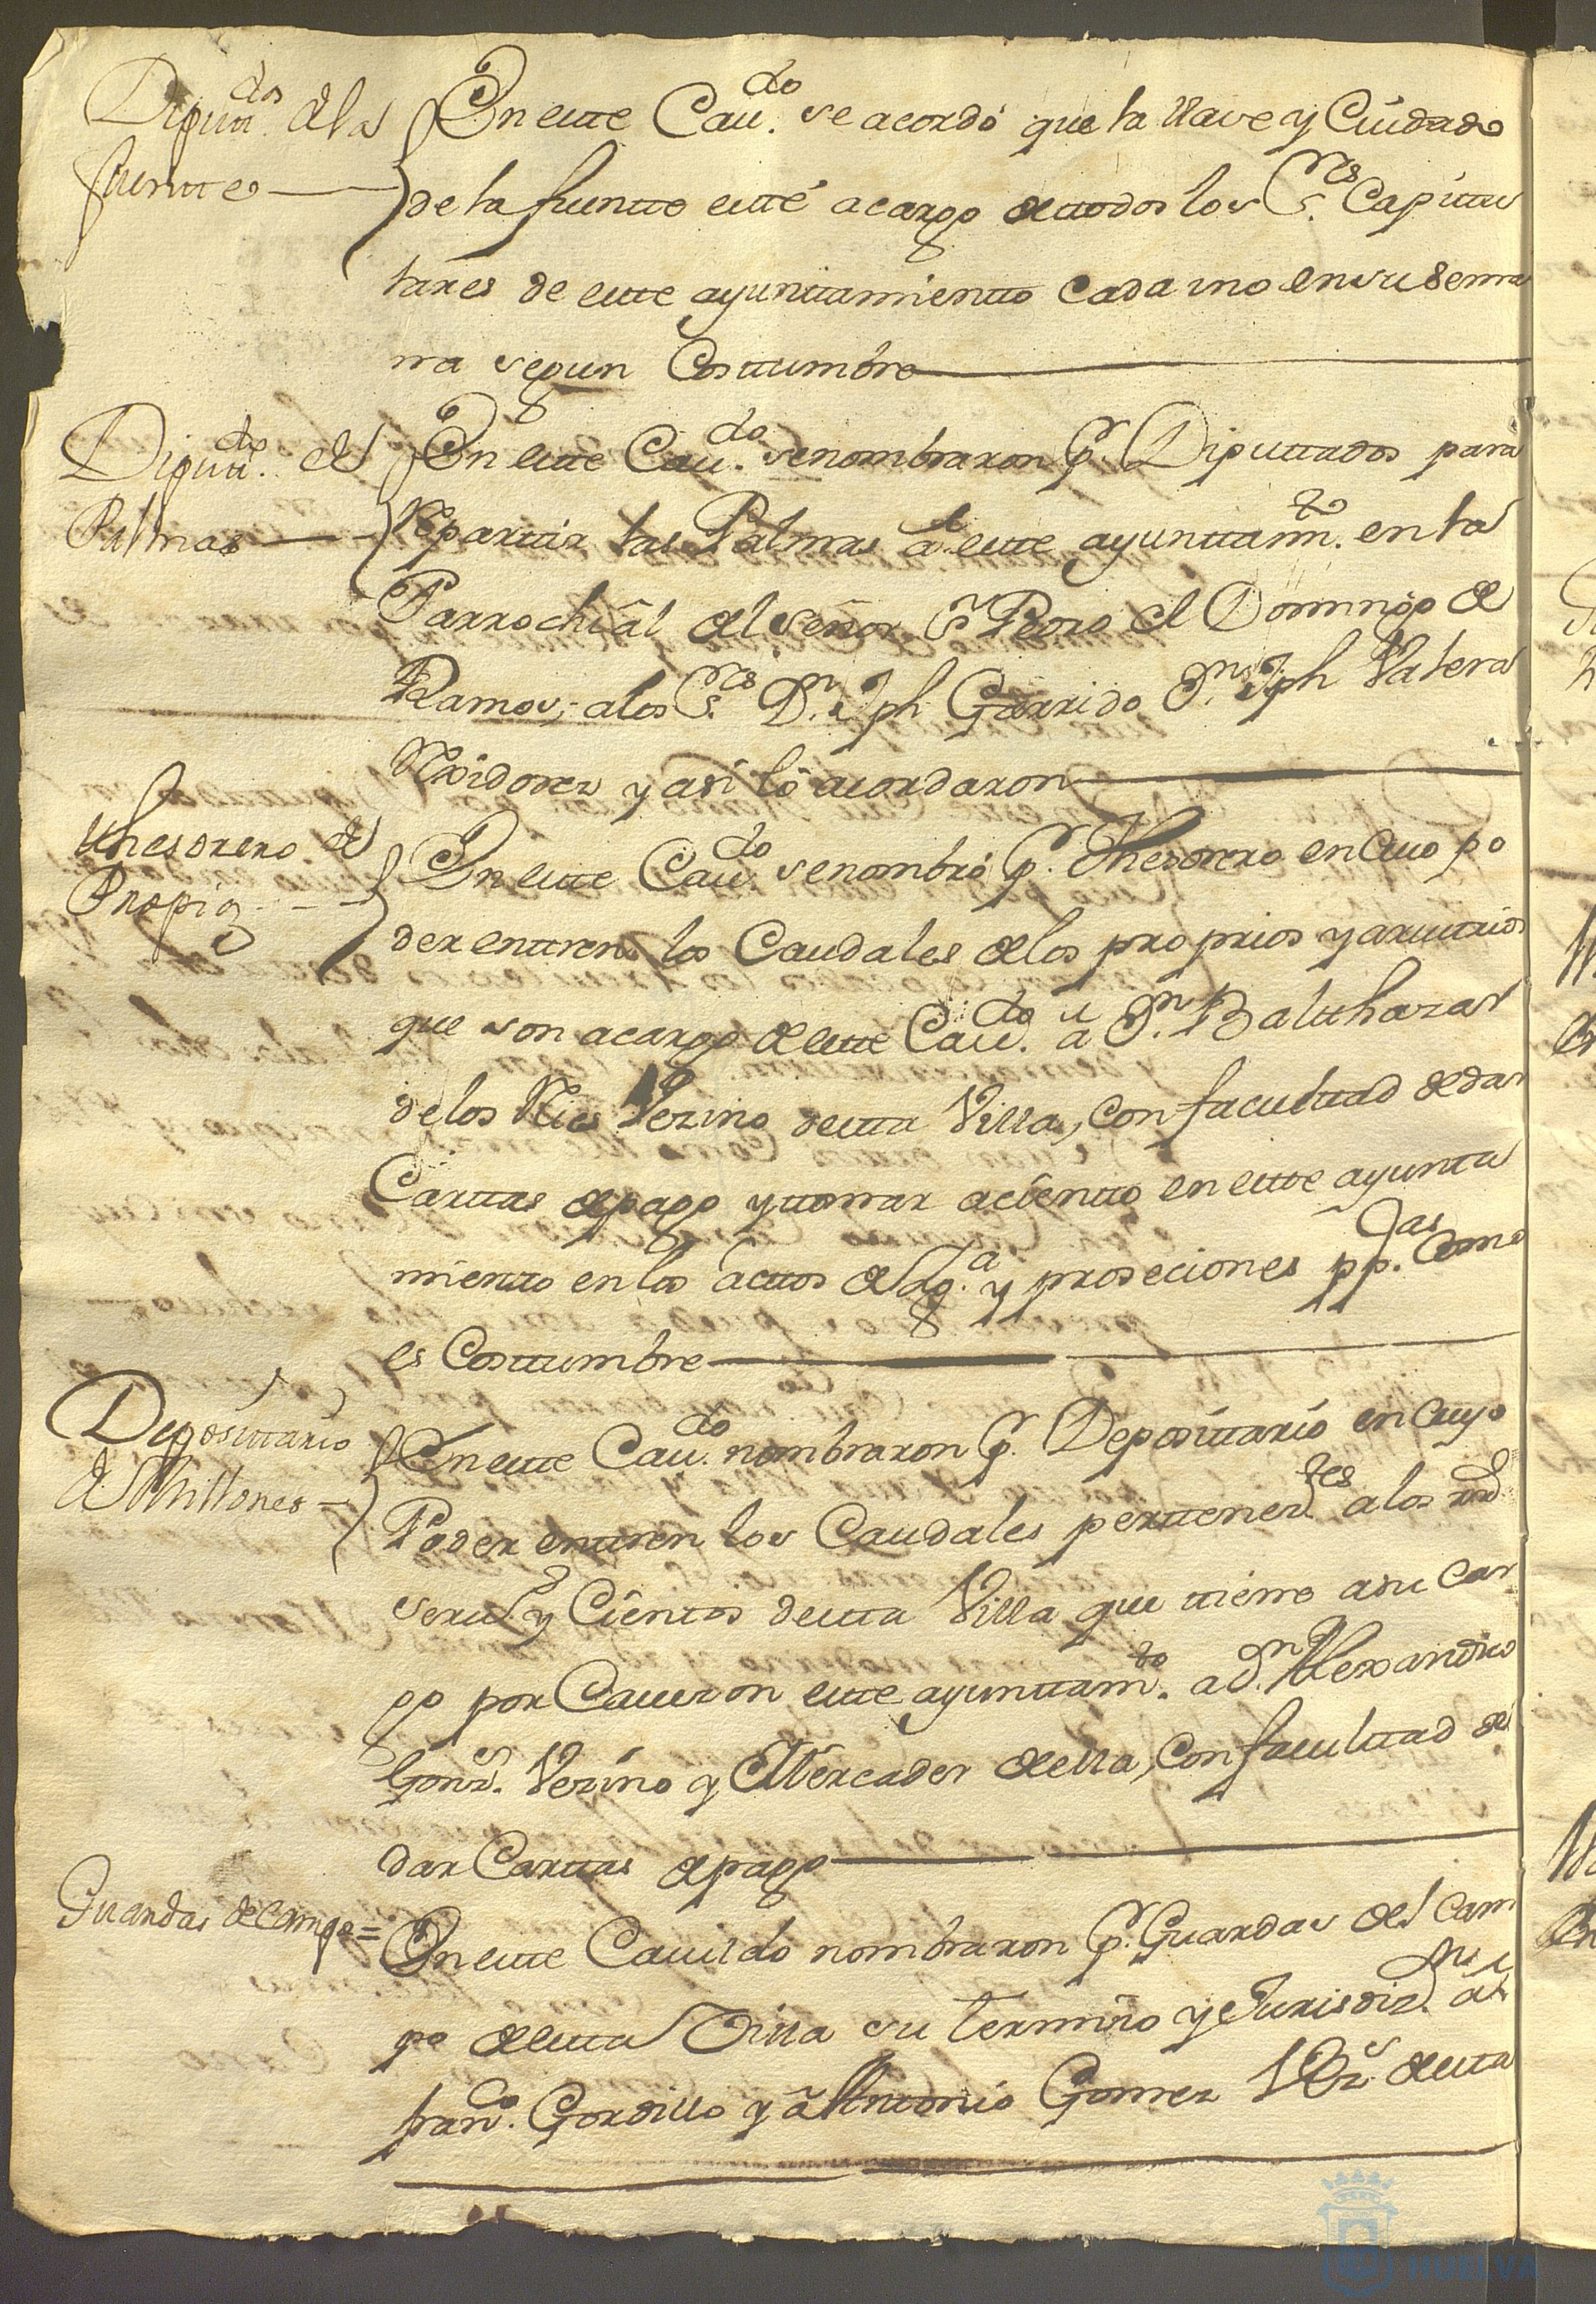 Diputt.dos de la
fuente
En este Cav.do se acordó que la llave y Cuidado
de la fuente esté a cargo de todos los S.res Capitu
lares de este ayuntamiento cada uno en su sema
na segun Costumbre
Diputt.dos de
Palmas
En este Cav.do se nombraron p.r Diputtados para
Repartir las Palmas a este ayunttam.to en la
Parrochial del señor S.n Pedro el Domingo de
Ramos, a los S.res D.n Jph Garrido D.n Jph Valera
Rexidores y asi lo acordaron
thesorero de
Propios
En este Cav.do se nombró p.r Thesorero en cuio po
der entren los Caudales de los proprios y arvitrios
que son a cargo de este Cav.do a D.n Balthazar
de los Rios Vezino de esta Villa, con facultad de dar
Cartas de pago y tomar aciento en este ayunta
miento en los actos de Ygl.a y proseciones pp.cas como
es Costumbre
Deposittario
de Millones
En este Cav.do nombraron p.r Deposittario en cuyo
Poder entren los Caudales pertenez.tes a los mill.s
serv.s y Cientos de esta Villa que tiene a su car
go por Caveson este ayunttam.to a D.n Alexandro
Gonz.s Vezino y Mercader de ella, con facultad de
dar Carttas de pago
Guardas de Campo =
En este Cavildo nombraron p.r Guardas del Cam
po de esta Villa su termino y Jurisdiz.on a
fran.co Gordillo y a Antonio Gomez Vez.s de esta
HUELVA